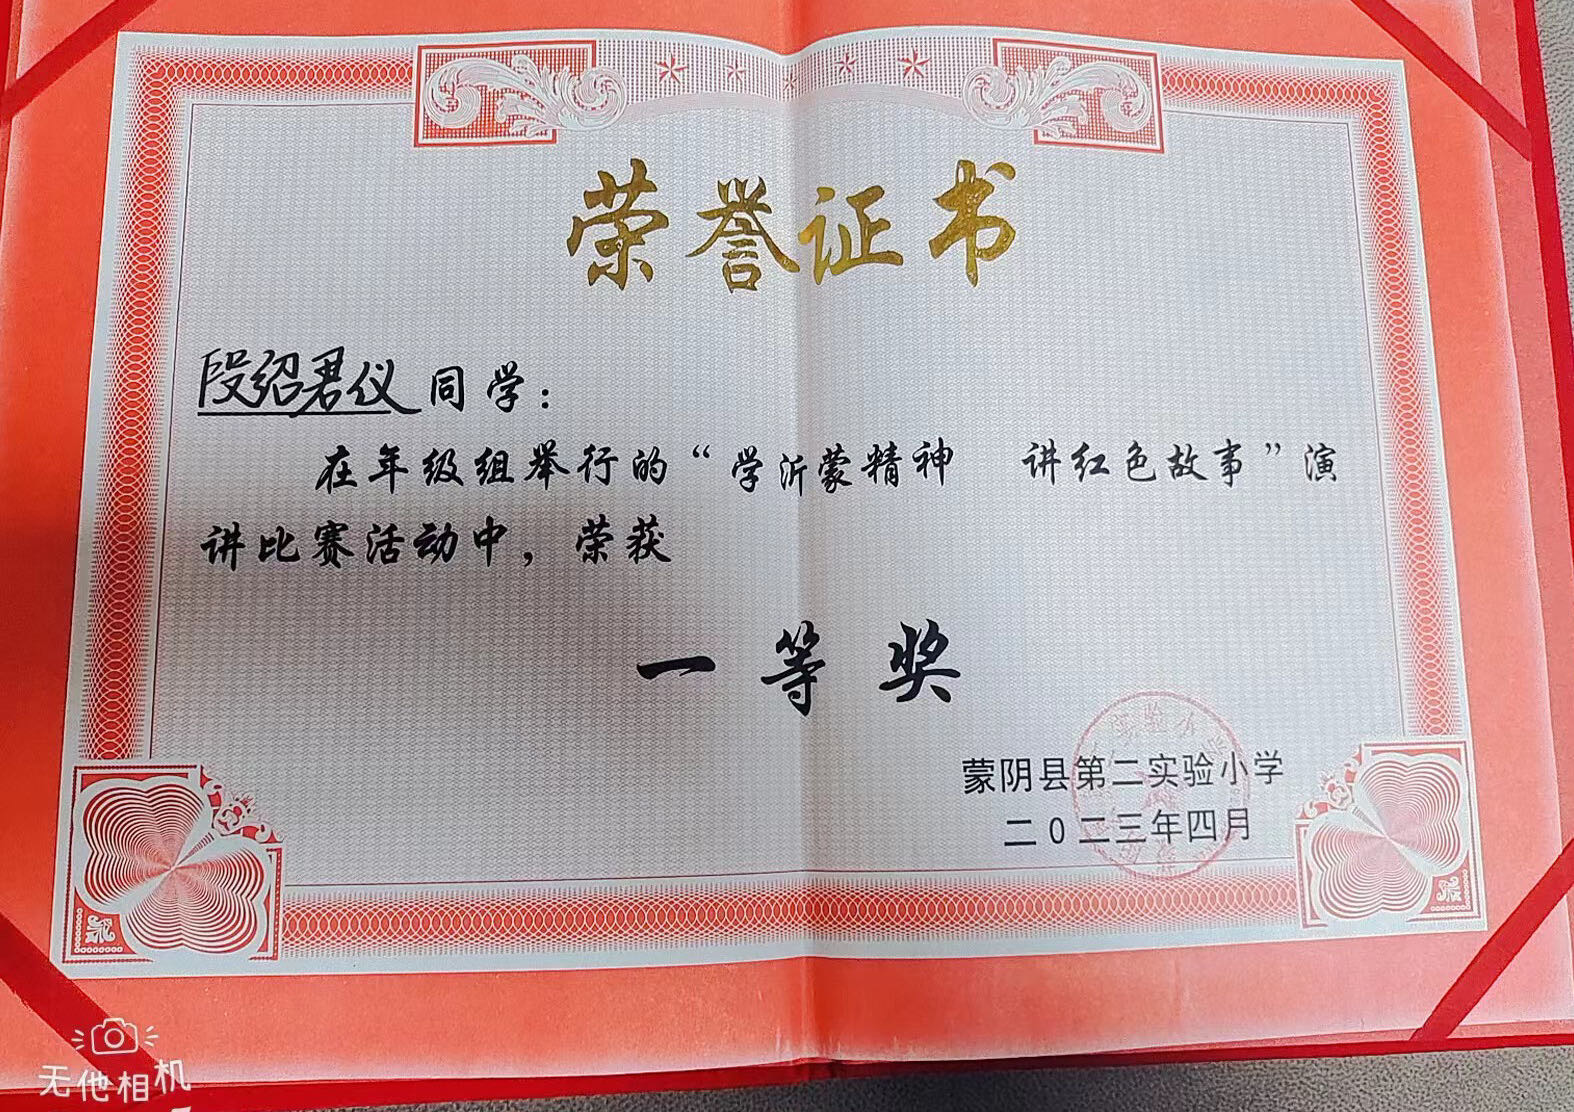 荣誉证书
段绍君仪同学：
在年级组举行的“学沂蒙精神 讲红色故事”演
讲比赛活动中，荣获
一等奖
蒙阴县第二实验小学
二０二三年四月
无他相机